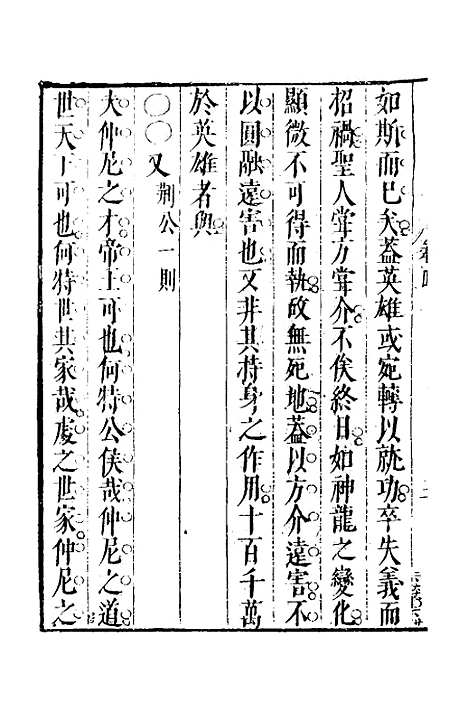 如斯而已矣蓋英雄或宛轉以就功卒失義而
招禍聖人嘗方嘗介不俟終日如神龍之變化
顯微不可得而執故無死地蓋以方介遠害不
以圓融遠害也又非其持身之作用十百千萬
於英雄者與
〇〇又荆公一則
大仲尼之才帝王可也何特公侯哉仲尼之道
世天下可也何特世其家哉處之世家仲尼之